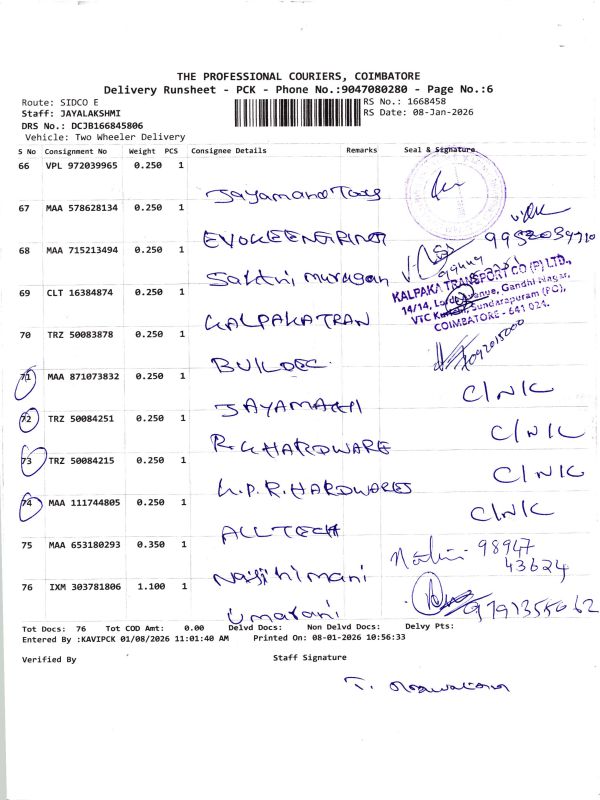 THE PROFESSIONAL COURIERS, COIMBATORE
Delivery Runsheet - PCK - Phone No.:9047080280 - Page No.:6
Route: SIDCO E RS No.: 1668458
Staff: JAYALAKSHMI RS Date: 08-Jan-2026
DRS No.: DCJB166845806
Vehicle: Two Wheeler Delivery
S No Consignment No Weight PCS Consignee Details Remarks Seal & Signature
66 VPL 972039965 0.250 1
67 MAA 578628134 0.250 1
EVOKEENGRINER
68 MAA 715213494 0.250 1
Sakthi murugan
69 CLT 16384874 0.250 1
KALPAKA TRANSPORT CO (P) LTD.,
14/14, Lorry Avenue, Gandhi Nagar,
VTC Sundarapuram (PO),
COIMBATORE - 641 024.
KALPAKATRAN
70 TRZ 50083878 0.250 1
BUILDEC
71 MAA 871073832 0.250 1 C/N/C
JAYAMAKHI
72 TRZ 50084251 0.250 1 C/N/C
R.K HARDWARE
73 TRZ 50084215 0.250 1 C/N/C
K.P.R. HARDWARES
74 MAA 111744805 0.250 1 C/N/C
ALLTECH
75 MAA 653180293 0.350 1 98947
43624
76 IXM 303781806 1.100 1
Umarani
Tot Docs: 76 Tot COD Amt: 0.00 Delvd Docs: Non Delvd Docs: Delvy Pts:
Entered By :KAVIPCK 01/08/2026 11:01:40 AM Printed On: 08-01-2026 10:56:33
Verified By Staff Signature